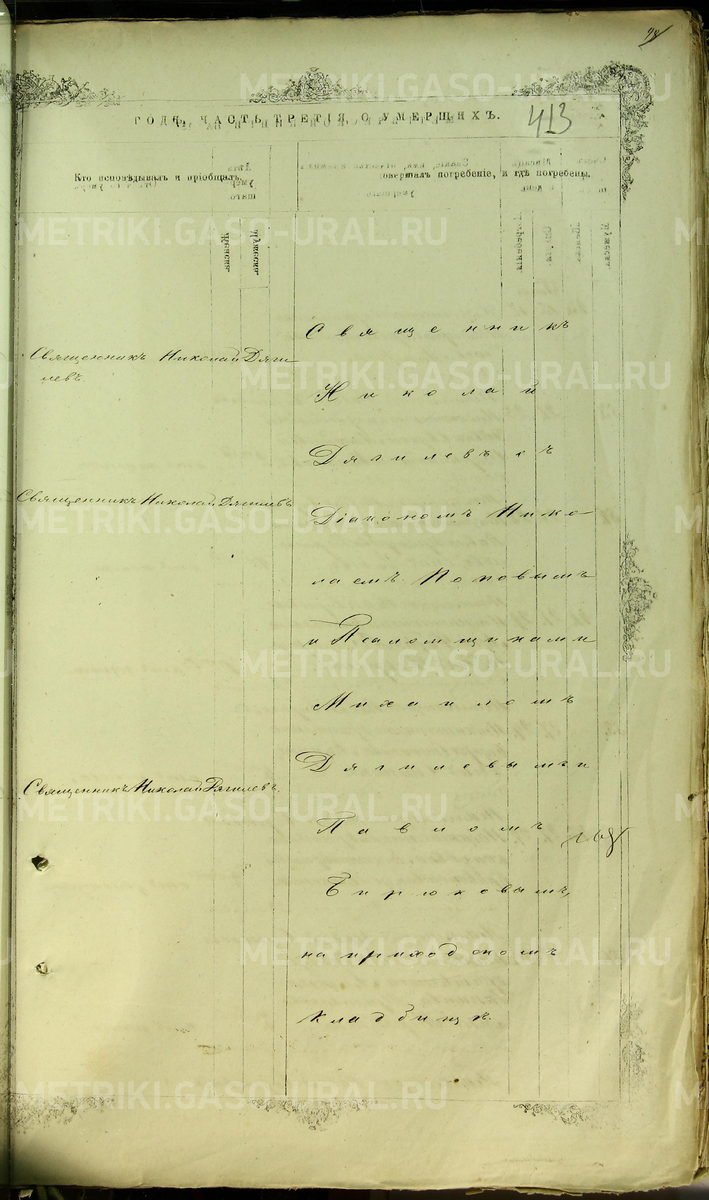 ГОДЪ, ЧАСТЬ ТРЕТІЯ О УМЕРШИХЪ.
413
Кто исповѣдывалъ и пріобщалъ.
Кто совершалъ погребеніе, и гдѣ погребены.
Священникъ Николай Дяги
левъ.
Священникъ Николай Дягилевъ
Священникъ Николай Дягилевъ.
Священникъ
Николай
Дягилевъ съ
Діакономъ Нико
лаемъ Поповымъ
и Псаломщиками
Михаиломъ
Дягилевымъ и
Павломъ
Бирюковымъ,
на приходскомъ
кладбищѣ.
METRIKI.GASO-URAL.RU